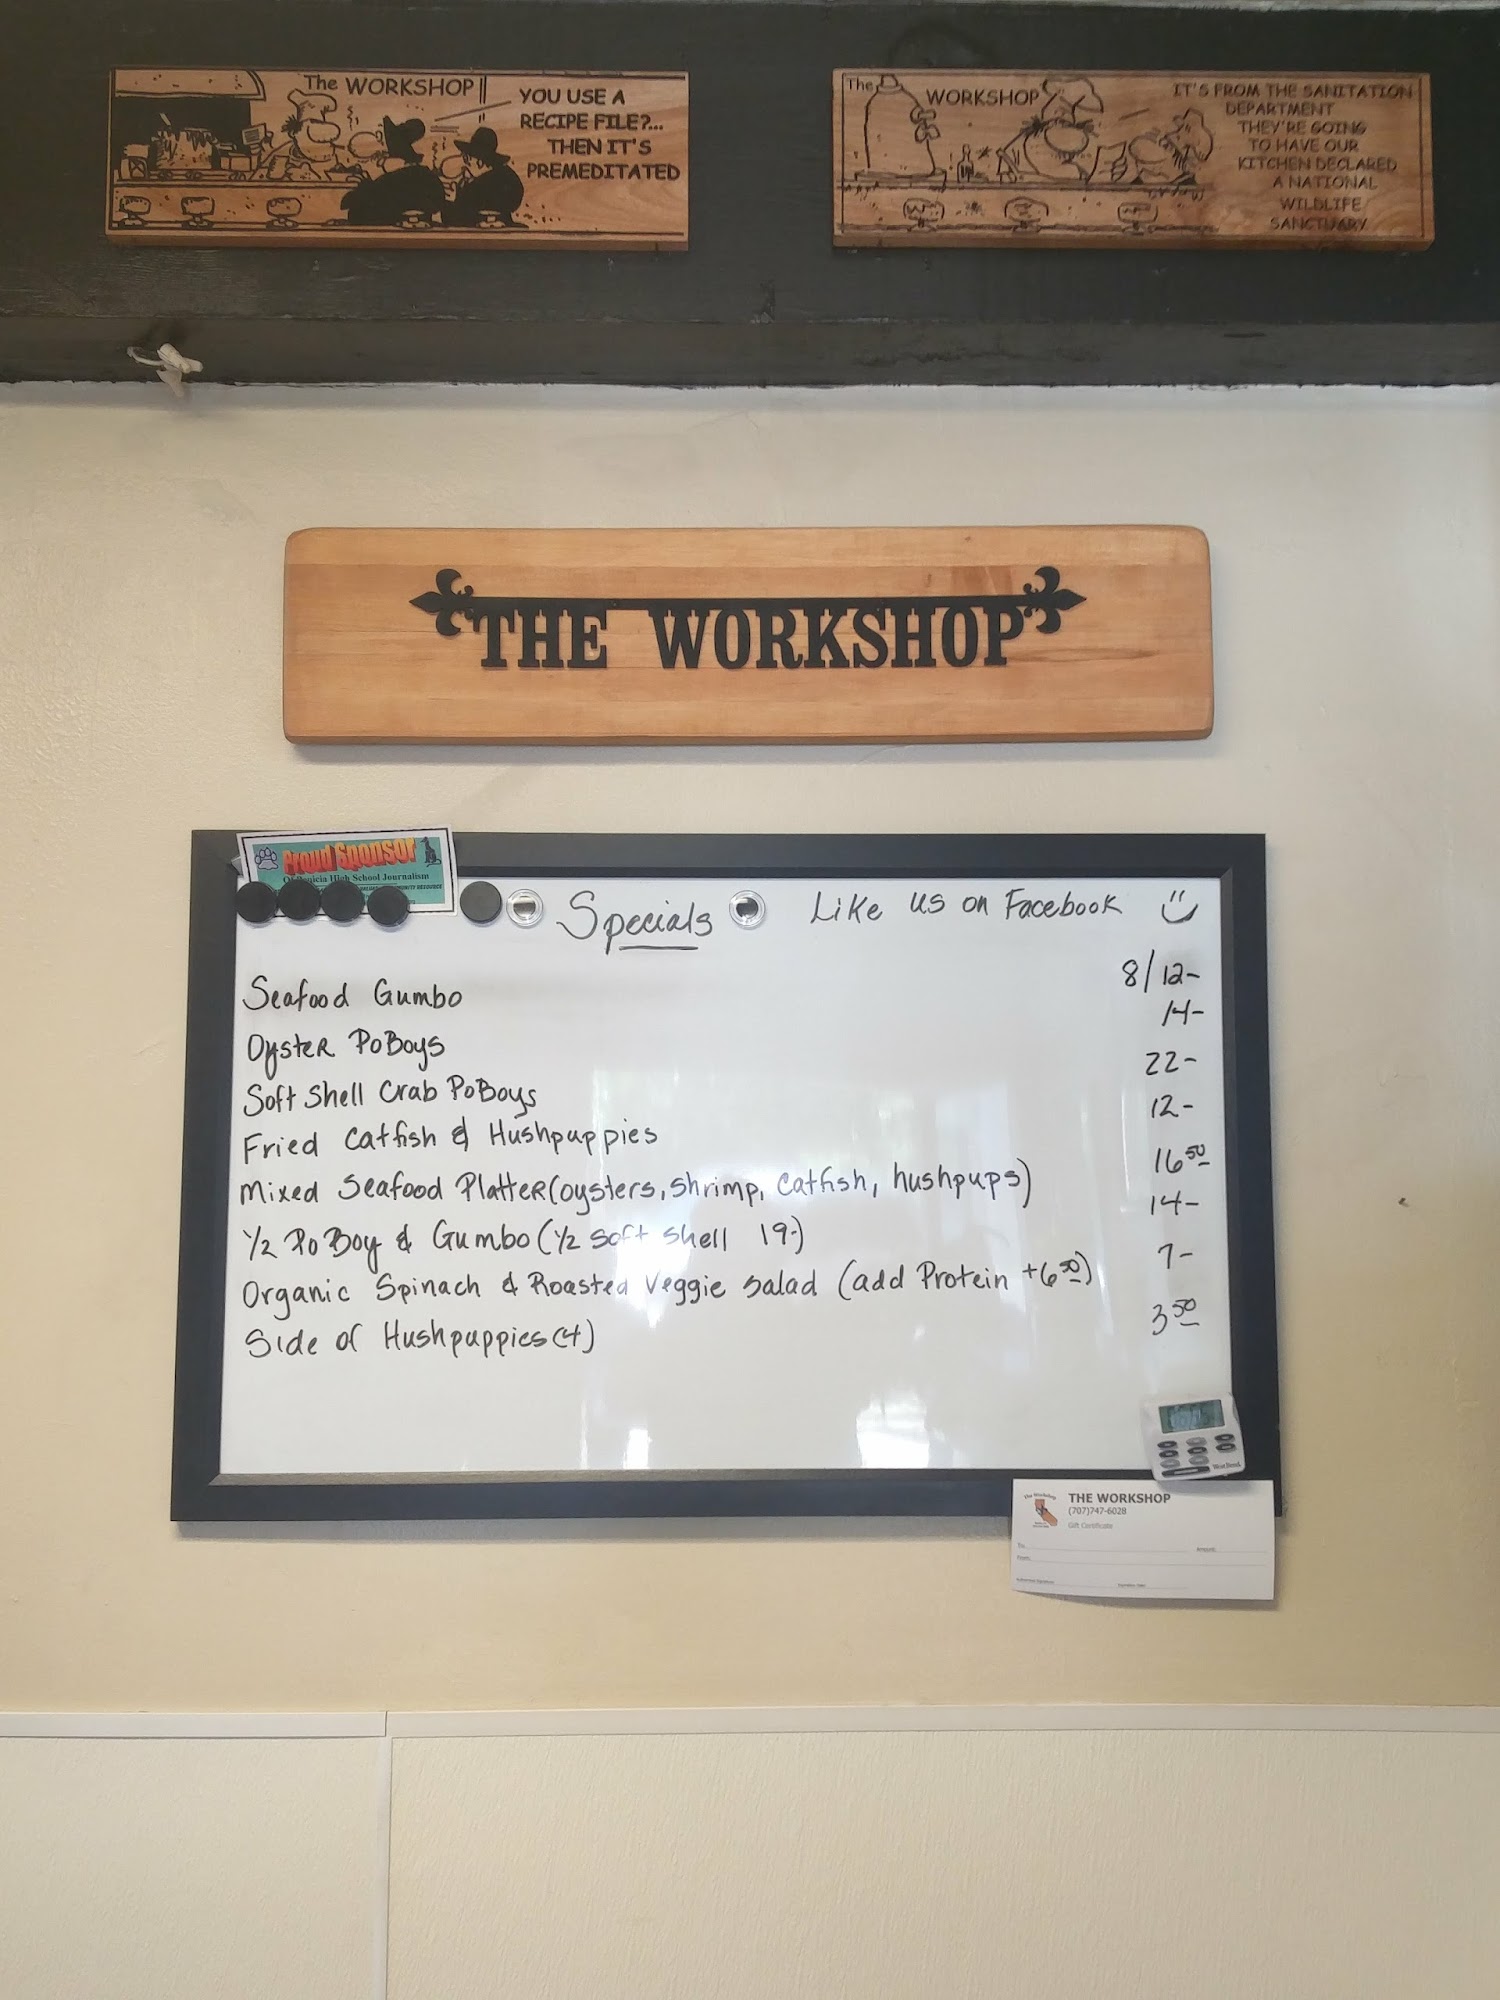 The WORKSHOP
YOU USE A
RECIPE FILE?...
THEN IT'S
PREMEDITATED
The WORKSHOP
IT'S FROM THE SANITATION
DEPARTMENT
THEY'RE GOING
TO HAVE OUR
KITCHEN DECLARED
A NATIONAL
WILDLIFE
SANCTUARY
THE WORKSHOP
Proud Sponsor
Of Benicia High School Journalism
Specials Like us on Facebook
Seafood Gumbo 8/12-
Oyster PoBoys 14-
Soft Shell Crab PoBoys 22-
Fried Catfish & Hushpuppies 12-
Mixed Seafood Platter (oysters, shrimp, catfish, hushpups) 16 50
1/2 PoBoy & Gumbo (1/2 soft shell 19-) 14-
Organic Spinach & Roasted Veggie Salad (add Protein +6 50) 7-
Side of Hushpuppies (4) 3 50
The Workshop
THE WORKSHOP
(707)747-6028
Gift Certificate
To:
Amount:
From: